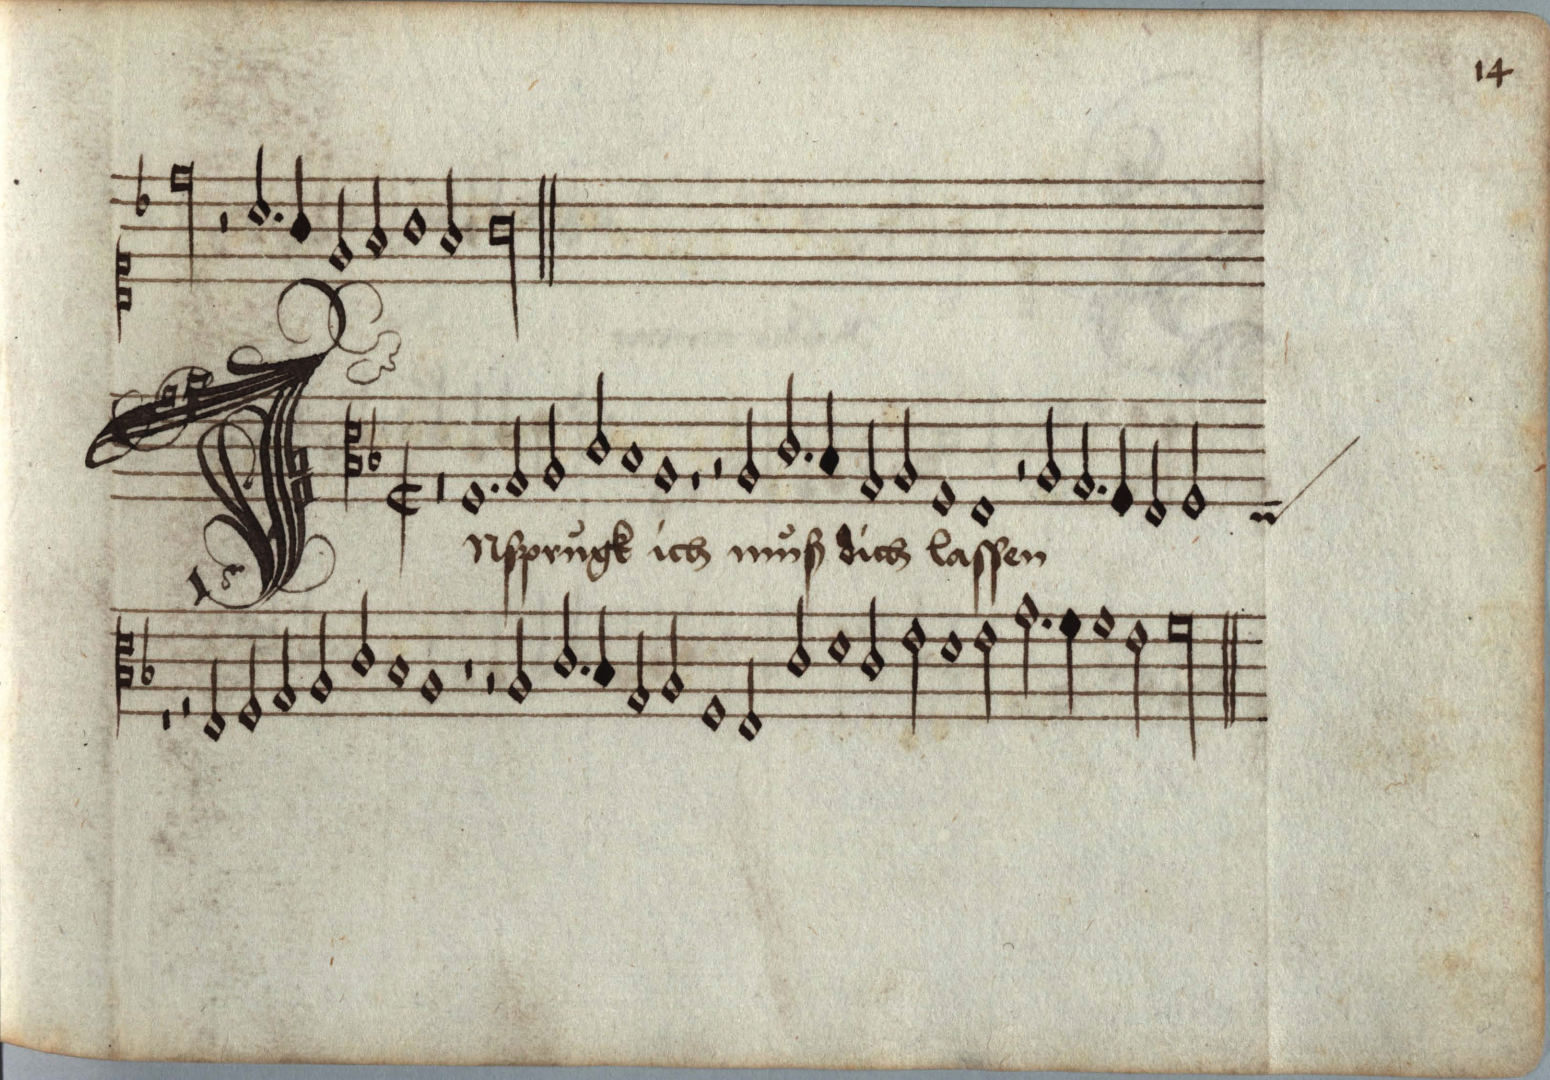 14
Jnsprůgk ich můß dich lassen